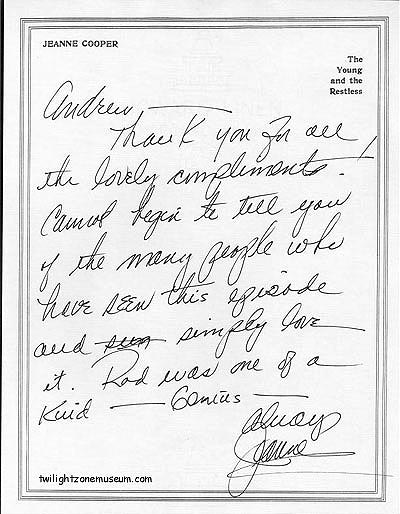 JEANNE COOPER
The
Young
and the
Restless
Andrew —
Thank you for all
the lovely compliments!
Cannot begin to tell you
of the many people who
have seen this episode
and simply love
it. Rod was one of a
Kind — Genius —
Always
Jeanne
twilightzonemuseum.com